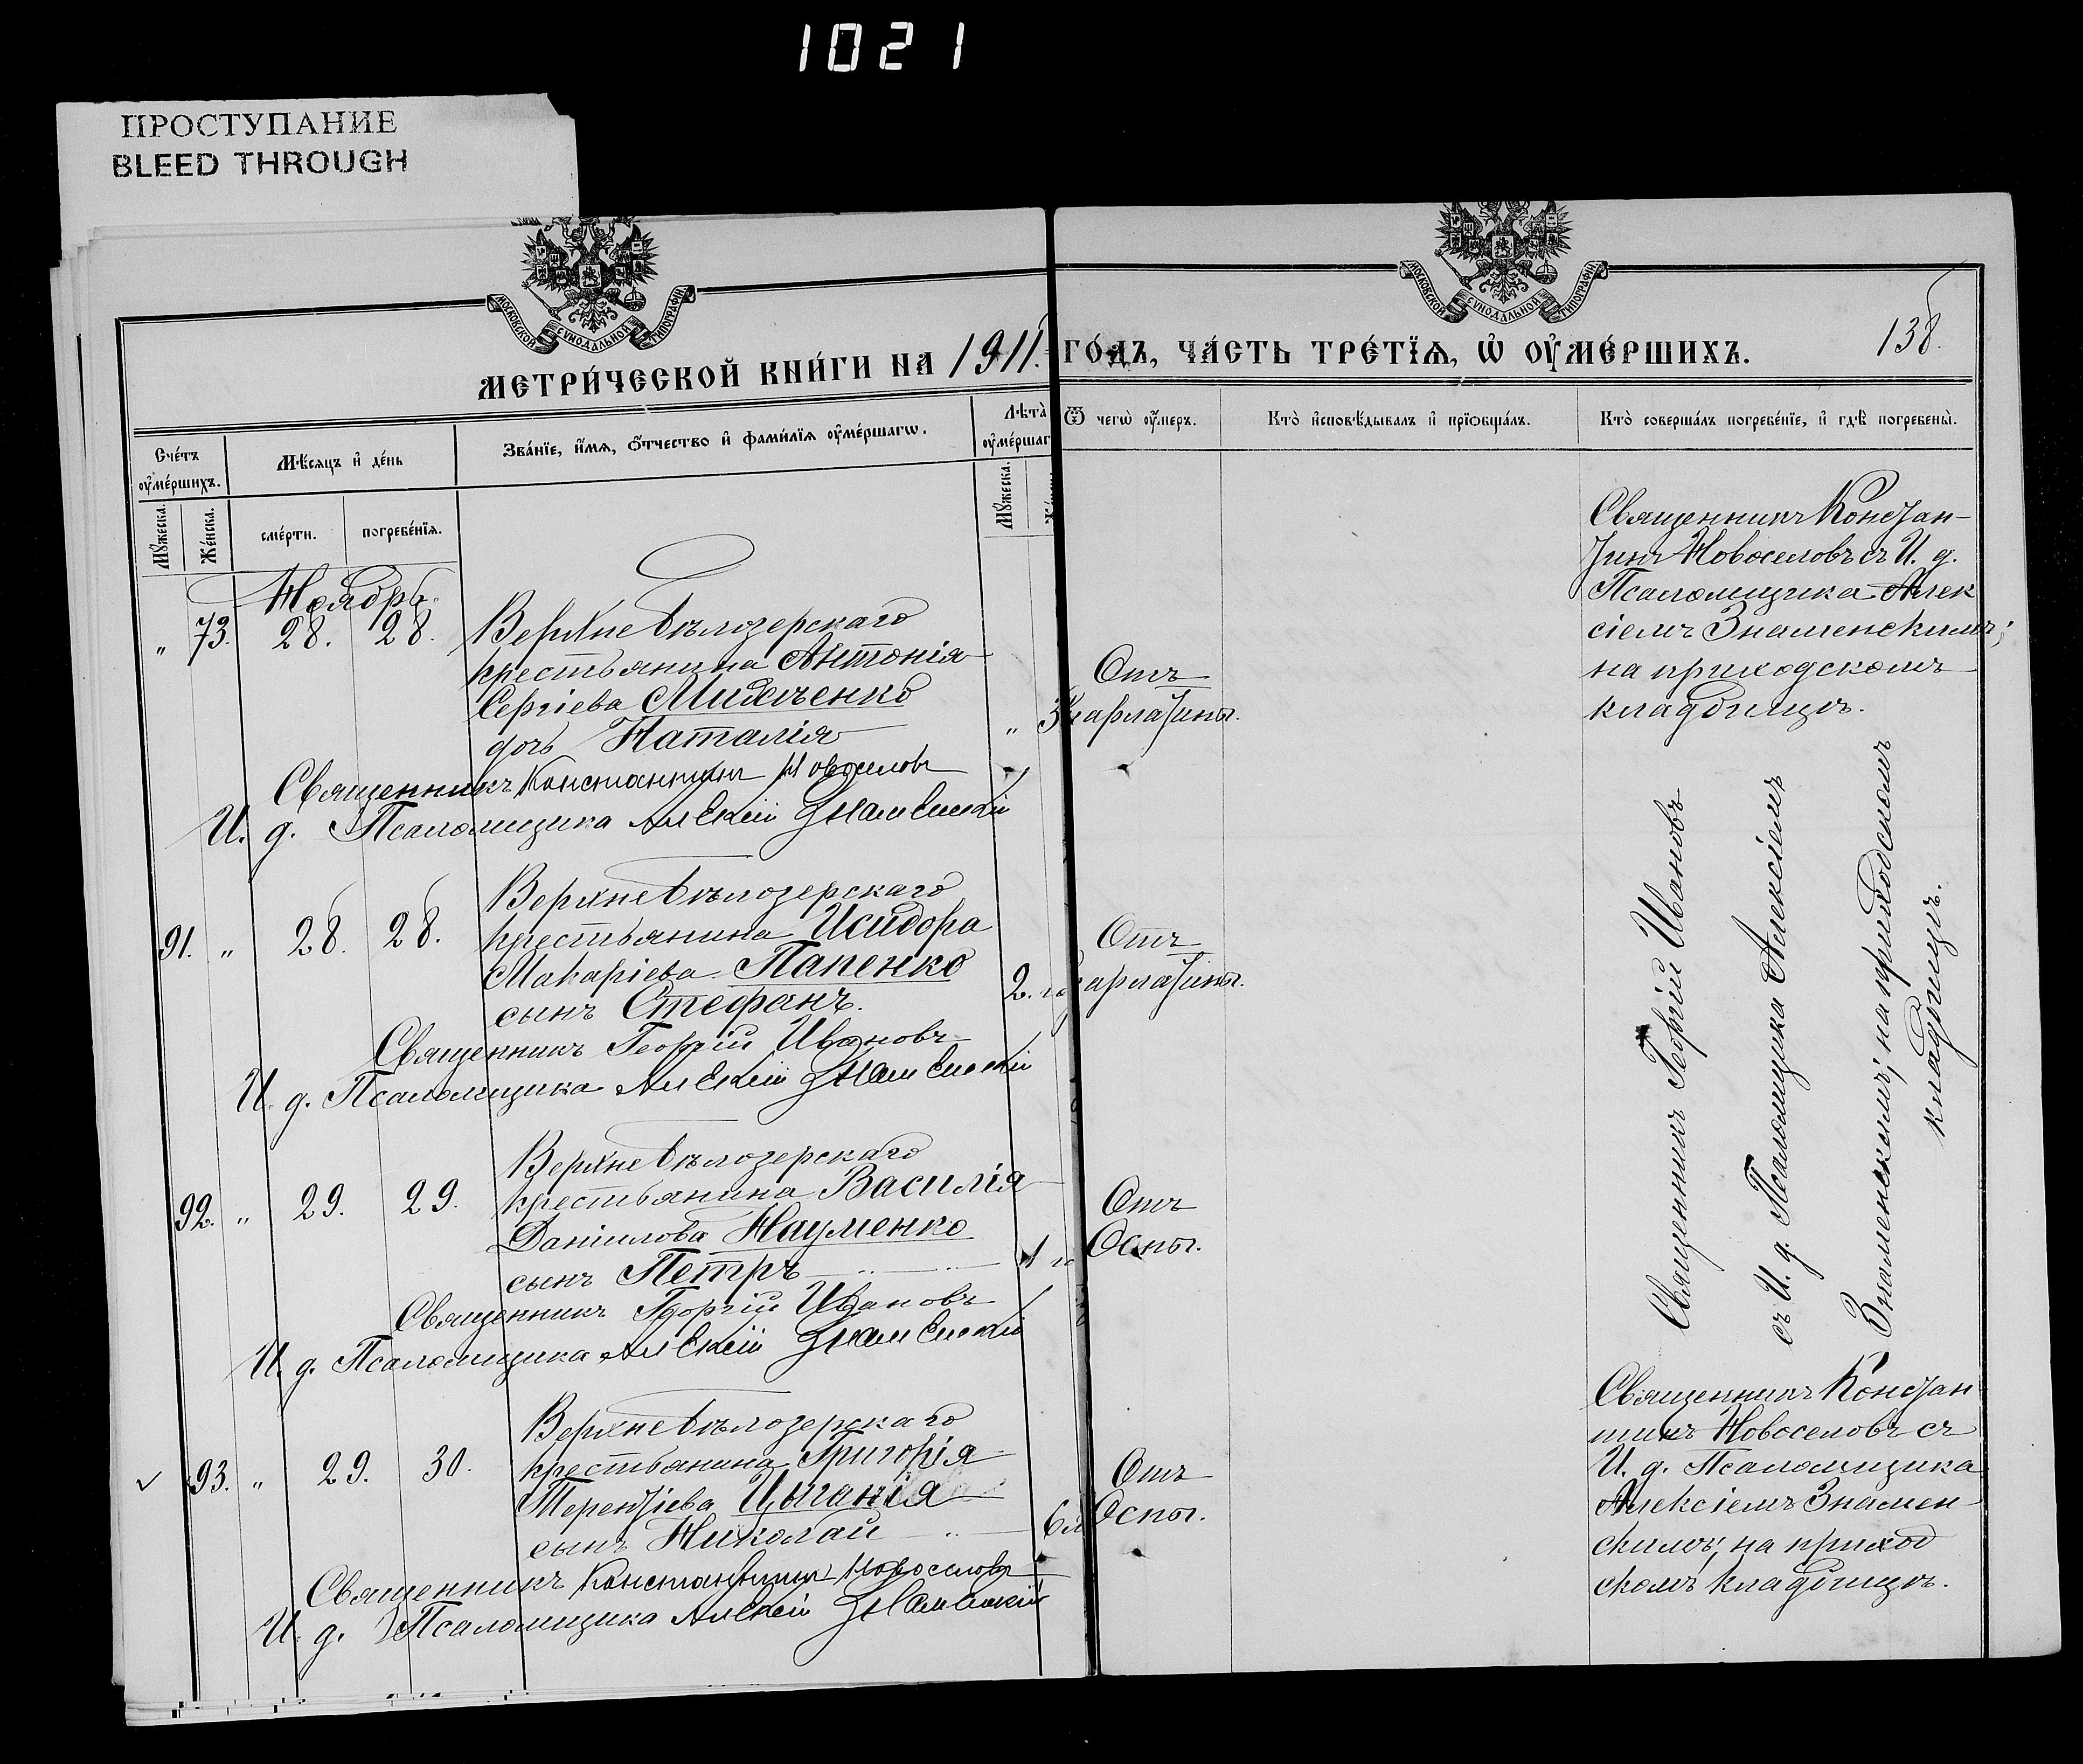 1021
ПРОСТУПАНИЕ
BLEED THROUGH
МОСКОВСКОЙ СѴНОДАЛЬНОЙ ТИПОГРАФІИ
МОСКОВСКОЙ СѴНОДАЛЬНОЙ ТИПОГРАФІИ
МЕТРИ́ЧЕСКОЙ КНИ́ГИ НА 1911. ГО́ДЪ, ЧА́СТЬ ТРЕ́ТЇѦ, Ѡ҆ ОУ҆МЕ́РШИХЪ.
138.
Сче́тъ оу҆ме́ршихъ.
Мꙋ́жеска.
Же́нска.
Мѣ́сяцъ и҆ де́нь
сме́рти.
погребе́нїя.
Зва́нїе, и҆́мя, ѻ҆́тчество и҆ фами́лїя оу҆ме́ршагѡ.
Лѣ́та оу҆ме́ршаг
Мꙋ́жеска.
Ѿ чегѡ̀ оу҆́меръ.
Кто̀ и҆сповѣ́дывалъ и҆ прїѡбща́лъ.
Кто̀ соверша́лъ погребе́нїе, и҆ гдѣ̀ погребены̀.
Ноябрь
" 73. 28. 28.
Верхнебѣлозерскаго
крестьянина Антонія
Сергіева Михченко
дочь Наталія
" 3
Отъ
скарлатины.
Священникъ Констан-
тинъ Новоселовъ съ И. д.
Псаломщика Алек
сіемъ Знаменскимъ;
на приходскомъ
кладбищѣ.
Священникъ Константинъ Новоселовъ
И. д. Псаломщика Алексій Знаменскій
91. " 28. 28.
Верхнебѣлозерскаго
крестьянина Исидора
Макаріева Папенко
сынъ Стефанъ.
2. го
Отъ
скарлатины.
Священникъ Георгій Ивановъ
И. д. Псаломщика Алексій Знаменскій
92. " 29. 29.
Верхнебѣлозерскаго
крестьянина Василія
Даніилова Науменко
сынъ Петръ
1 го
Отъ
Оспы.
Священникъ Георгій Ивановъ
съ И. д. Псаломщика Алексіемъ
Знаменскимъ; на приходскомъ
кладбищѣ.
Священникъ Георгій Ивановъ
И. д. Псаломщика Алексій Знаменскій
93. " 29. 30.
Верхнебѣлозерскаго
крестьянина Григорія
Терентіева Цыганія
сынъ Николай
6 л
Отъ
Оспы.
Священникъ Констан
тинъ Новоселовъ съ
И. д. Псаломщика
Алексіемъ Знамен
скимъ; на приход
скомъ кладбищѣ.
Священникъ Константинъ Новоселовъ
И. д. Псаломщика Алексій Знаменскій